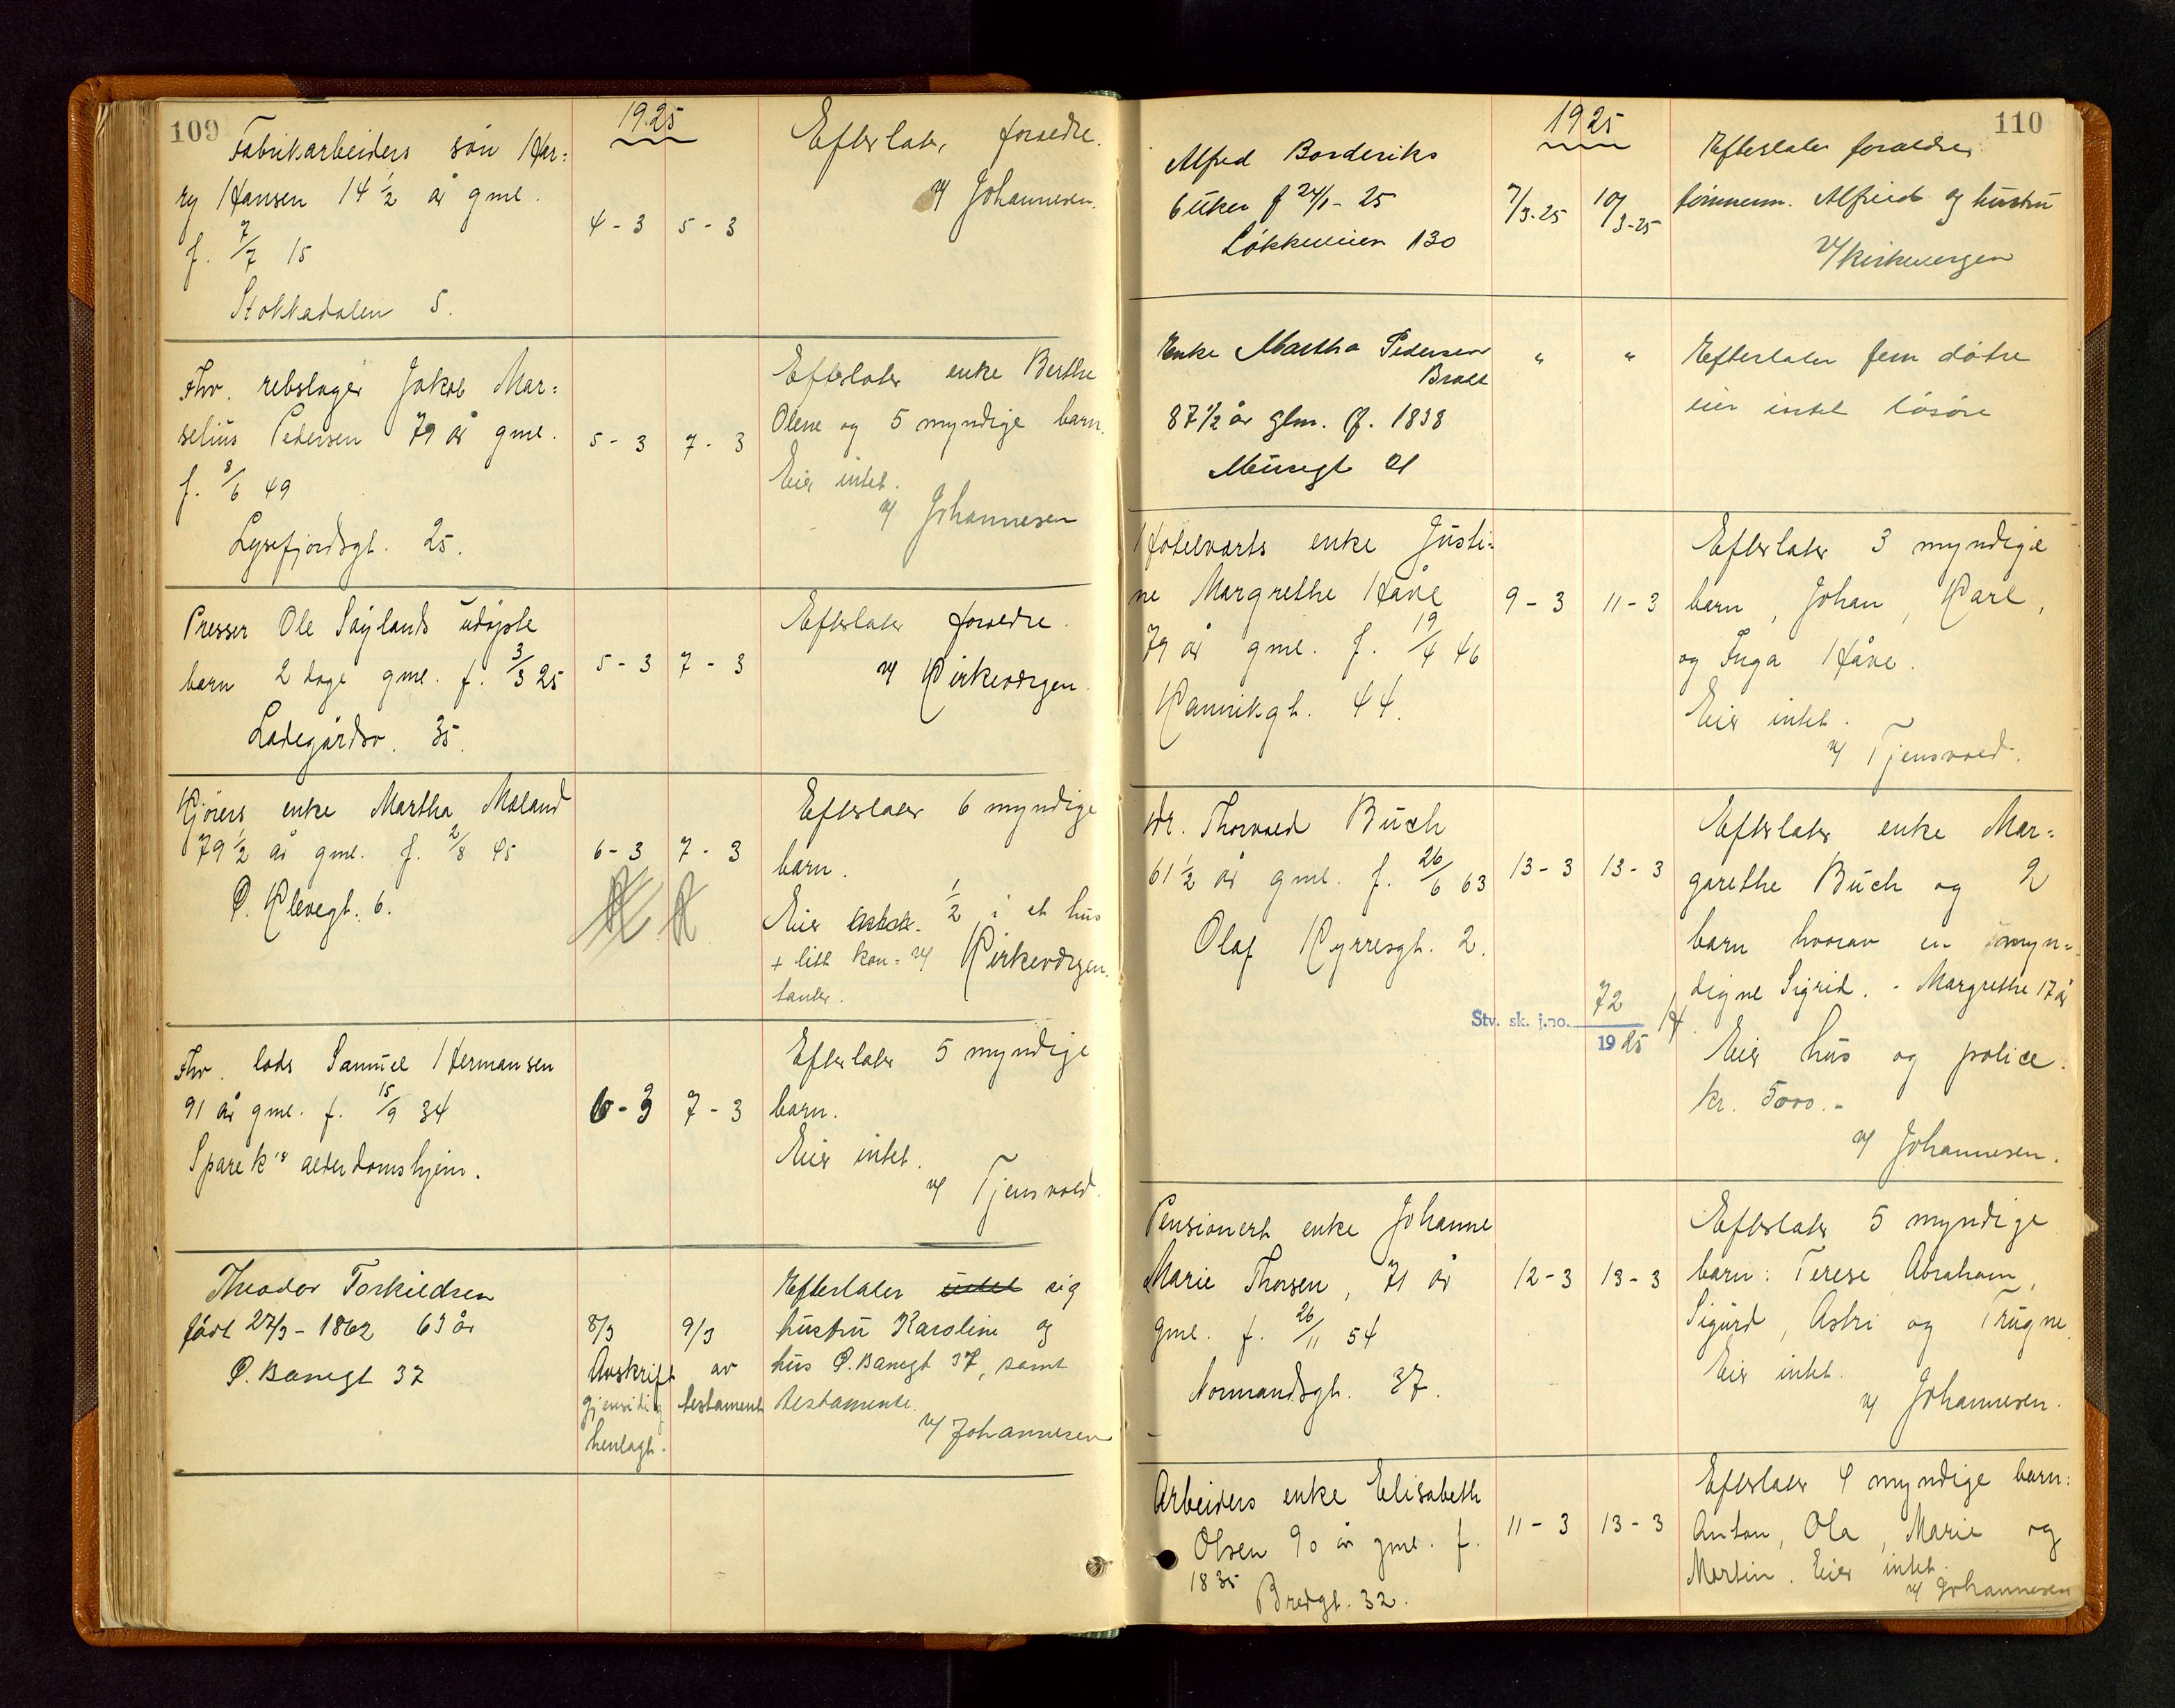 109
1925
Fabrikarbeiders søn Har=
ry Hansen 14 1/2 år gml.
f. 7/7 15
Stokkadalen 5.
4 - 3
5 - 3
Efterlater forældre.
v/ Johannesen.
Fhv. rebslager Jakob Mar=
selius Pedersen 79 år gml.
f. 8/6 49
Lysefjordsgt. 25.
5 - 3
7 - 3
Efterlater enke Berthe
Olene og 5 myndige barn.
Eier intet.
v/ Johannesen
Presser Ole Søylands udøpte
barn 2 dage gml. f. 3/3 25
Ladegårdsv. 35.
5 - 3
7 - 3
Efterlater forældre.
v/ Kirkeværgen.
Kjørers enke Martha Mæland
79 1/2 år gml. f. 2/8 45
P. Klovegt. 6.
6 - 3
7 - 3
Efterlater 6 myndige
barn.
Eier intet. 1/2 i et hus
+ litt kon= v/ Kirkeværgen.
tanter.
Fhv. lods Samuel Hermansen
91 år gml. f. 15/9 34
Sparek's alderdomshjem.
6 - 3
7 - 3
Efterlater 5 myndige
barn.
Eier intet.
v/ Tjensvold.
Theodor Torkildsen
født 27/3 - 1862 63 år
P. Banegt 37
8/3
9/3
Avskrift av
gjensidig testament
henlagt.
Efterlater intet sig
hustru Karoline og
hus P. Banegt 37, samt
testamente.
v/ Johannesen
110
1925
Alfred Borderiks
6 uker f 24/1 - 25
Løkkeveien 130
7/3-25
10/3-25
Efterlater forældre
tømmerm. Alfred og hustru
v/ Kirkevergen
Enke Martha Pedersen
87 1/2 år glm. f. 1838
Muregt 21
"
"
Efterlater fem døtre
eier intet løsøre
Hotelværts enke Justi=
ne Margrethe Håve
79 år gml. f. 19/4 46
Kannikgt. 44.
9 - 3
11 - 3
Efterlater 3 myndige
barn, Johan, Karl,
og Inga Håve.
Eier intet.
v/ Tjensvold.
Dr. Thorvald Buch
61 1/2 år gml. f. 26/6 63
Olaf Kyrresgt. 2.
13 - 3
13 - 3
Stv. sk. j.no. 72
1925
Efterlater enke Mar=
garethe Buch og 2
barn hvorav en umyn=
digne Sigrid. - Margrethe 17 år
Eier hus og police.
kr. 5000.-
v/ Johannesen.
Pensionert enke Johanne
Marie Thorsen, 71 år
gml. f. 26/11 54
Normandsgt. 37.
12 - 3
13 - 3
Efterlater 5 myndige
barn: Terese Abraham,
Sigurd, Astri og Trugne.
Eier intet.
v/ Johannesen.
Arbeiders enke Elisabeth
Olsen 90 år gml. f.
1835
Bredgt. 32.
11 - 3
13 - 3
Efterlater 4 myndige barn:
Anton, Ola, Marie og
Martin. Eier intet.
v/ Johannesen